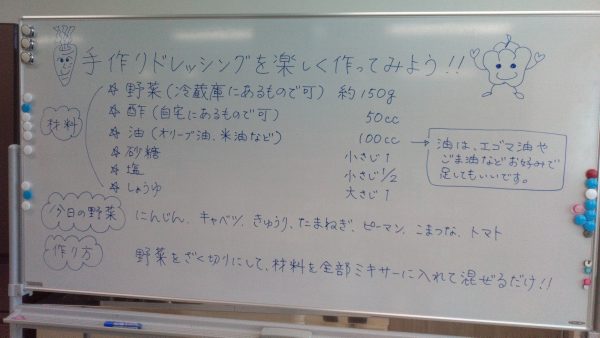 手作りドレッシングを楽しく作ってみよう!!
材料
野菜(冷蔵庫にあるもので可) 約150g
酢(自宅にあるもので可) 50cc
油(オリーブ油、米油など) 100cc → 油は、エゴマ油や
ごま油などお好みで
足してもいいです。
砂糖 小さじ1
塩 小さじ1/2
しょうゆ 大さじ1
今日の野菜 にんじん、キャベツ、きゅうり、たまねぎ、ピーマン、こまつな、トマト
作り方 野菜をざく切りにして、材料を全部ミキサーに入れて混ぜるだけ!!